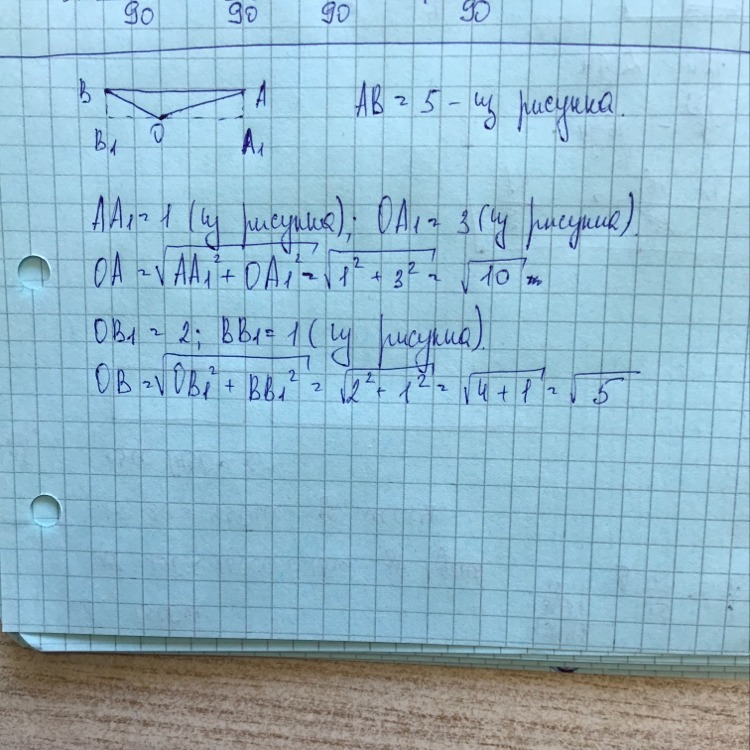 90 90 90 90
B A AB = 5 - из рисунка.
B1 O A1
AA1 = 1 (из рисунка); OA1 = 3 (из рисунка)
OA = √AA1² + OA1² = √1² + 3² = √10
OB1 = 2; BB1 = 1 (из рисунка).
OB = √OB1² + BB1² = √2² + 1² = √4 + 1 = √5